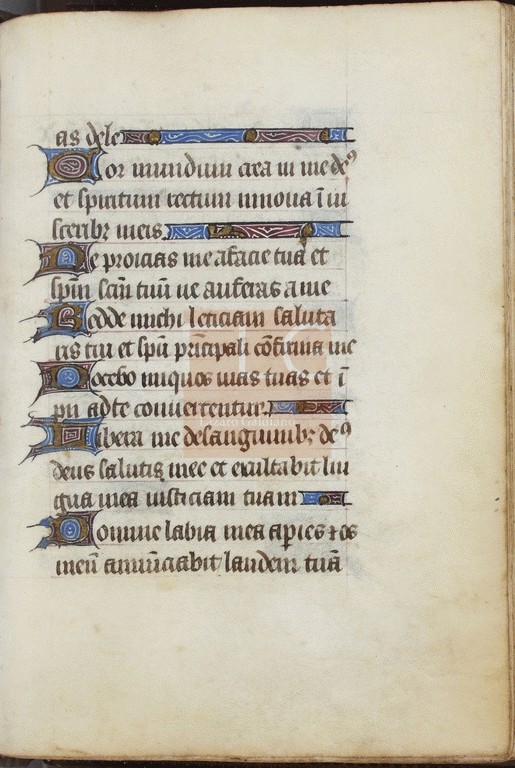 as dele
Cor mundum crea in me de⁹
et spiritum rectum innova ī vi
sceribꝫ meis
Ne proicias me a facie tua et
spm̄ scm̄ tuū ne auferas a me
Redde michi leticiam saluta
ris tui et spū prīcipali cōfirma me
Docebo iniquos vias tuas et ī
pii ad te convertentur.
Libera me de sanguinibꝫ de⁹
deus salutis mee et exultabit lin
gua mea iusticiam tuam
Domine labia mea apies ⁊ os
meū annūciabit laudem tuā
Lázaro Galdiano